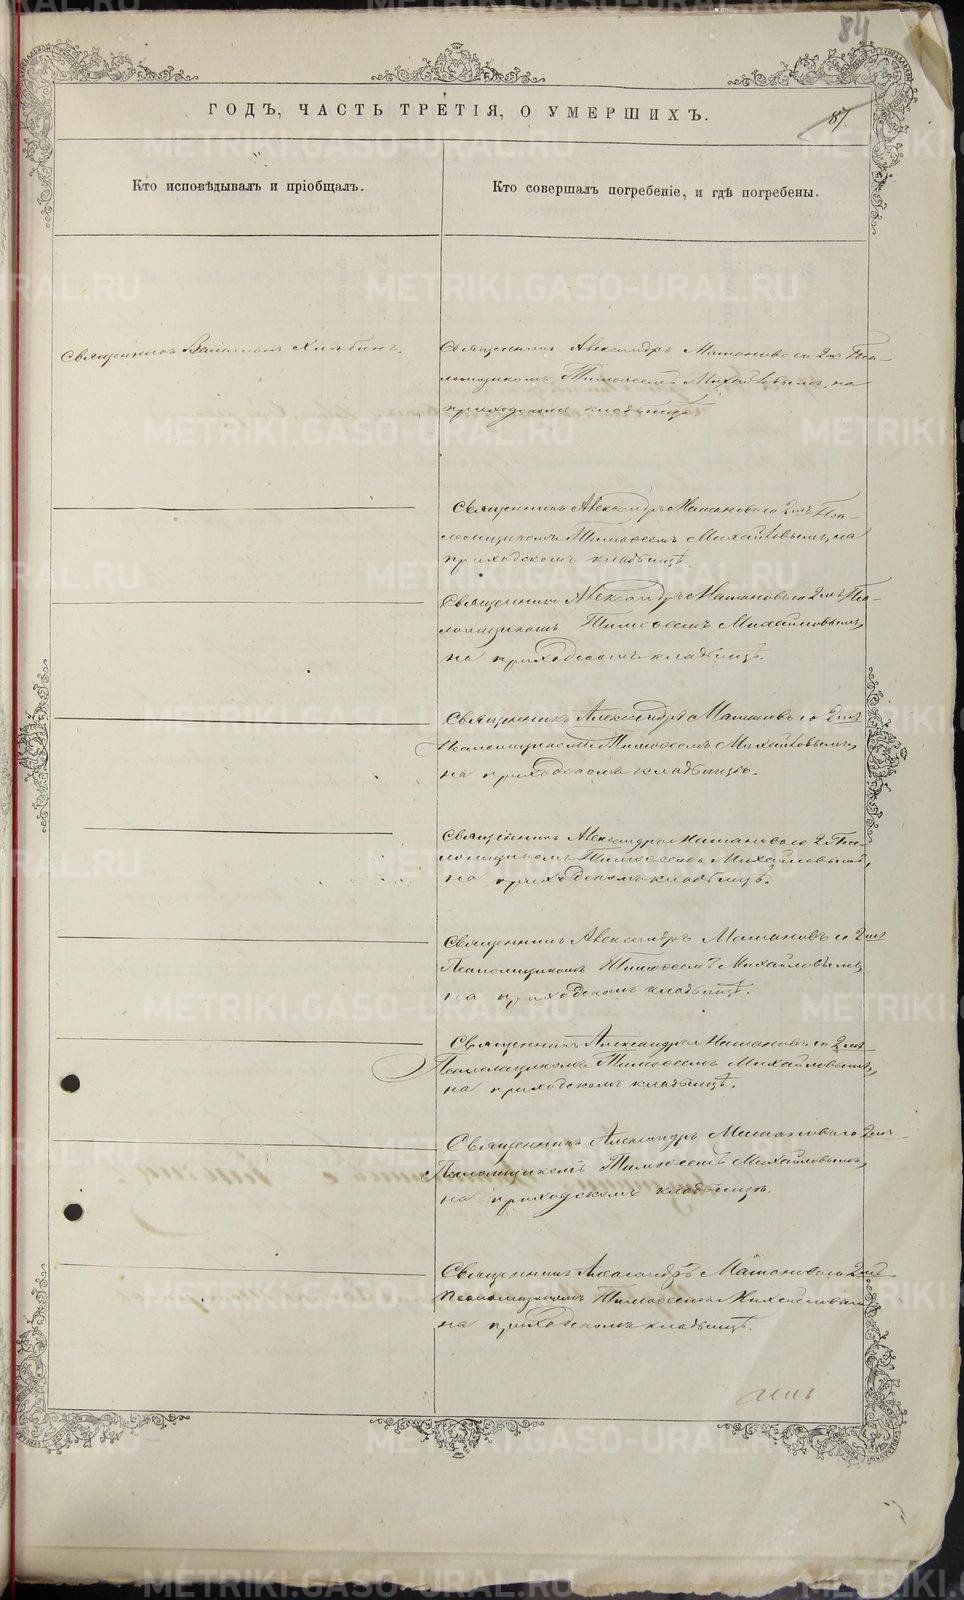 84
ГОДЪ, ЧАСТЬ ТРЕТІЯ, О УМЕРШИХЪ.
87.
Кто исповѣдывалъ и пріобщалъ.
Кто совершалъ погребеніе, и гдѣ погребены.
Священникъ
Священникъ Александръ Машановъ со 2мъ Пса-
ломщикомъ Тимофеемъ Михайловымъ, на
приходскомъ кладбищѣ.
Священникъ Александръ Машановъ со 2мъ Пса-
ломщикомъ Тимофеемъ Михайловымъ, на
приходскомъ кладбищѣ.
Священникъ Александръ Машановъ со 2мъ Пса-
ломщикомъ Тимофеемъ Михайловымъ,
на приходскомъ кладбищѣ.
Священникъ Александръ Машановъ со 2мъ
Псаломщикомъ Тимофеемъ Михайловымъ,
на приходскомъ кладбищѣ.
Священникъ Александръ Машановъ со 2мъ Пса-
ломщикомъ Тимофеемъ Михайловымъ,
на приходскомъ кладбищѣ.
Священникъ Александръ Машановъ со 2мъ
Псаломщикомъ Тимофеемъ Михайловымъ
на приходскомъ кладбищѣ.
Священникъ Александръ Машановъ со 2мъ
Псаломщикомъ Тимофеемъ Михайловымъ,
на приходскомъ кладбищѣ.
Священникъ Александръ Машановъ со 2мъ
Псаломщикомъ Тимофеемъ Михайловымъ,
на приходскомъ кладбищѣ.
Священникъ Александръ Машановъ со 2мъ
Псаломщикомъ Тимофеемъ Михайловымъ
на приходскомъ кладбищѣ.
METRIKI.GASO-URAL.RU